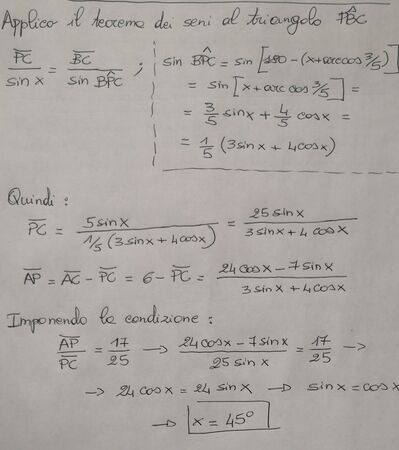 Applico il teorema dei seni al triangolo PB̂C
PC̅/sin x = BC̅/sin BP̂C ; sin BP̂C = sin [180 - (x + arccos 3/5)]
= sin [x + arc cos 3/5] =
= 3/5 sin x + 4/5 cos x =
= 1/5 (3 sin x + 4 cos x)
Quindi :
PC̅ = 5 sin x / 1/5 (3 sin x + 4 cos x) = 25 sin x / 3 sin x + 4 cos x
AP̅ = AC̅ - PC̅ = 6 - PC̅ = 24 cos x - 7 sin x / 3 sin x + 4 cos x
Imponendo la condizione :
AP̅/PC̅ = 17/25 → 24 cos x - 7 sin x / 25 sin x = 17/25 →
→ 24 cos x = 24 sin x → sin x = cos x
→ x = 45°